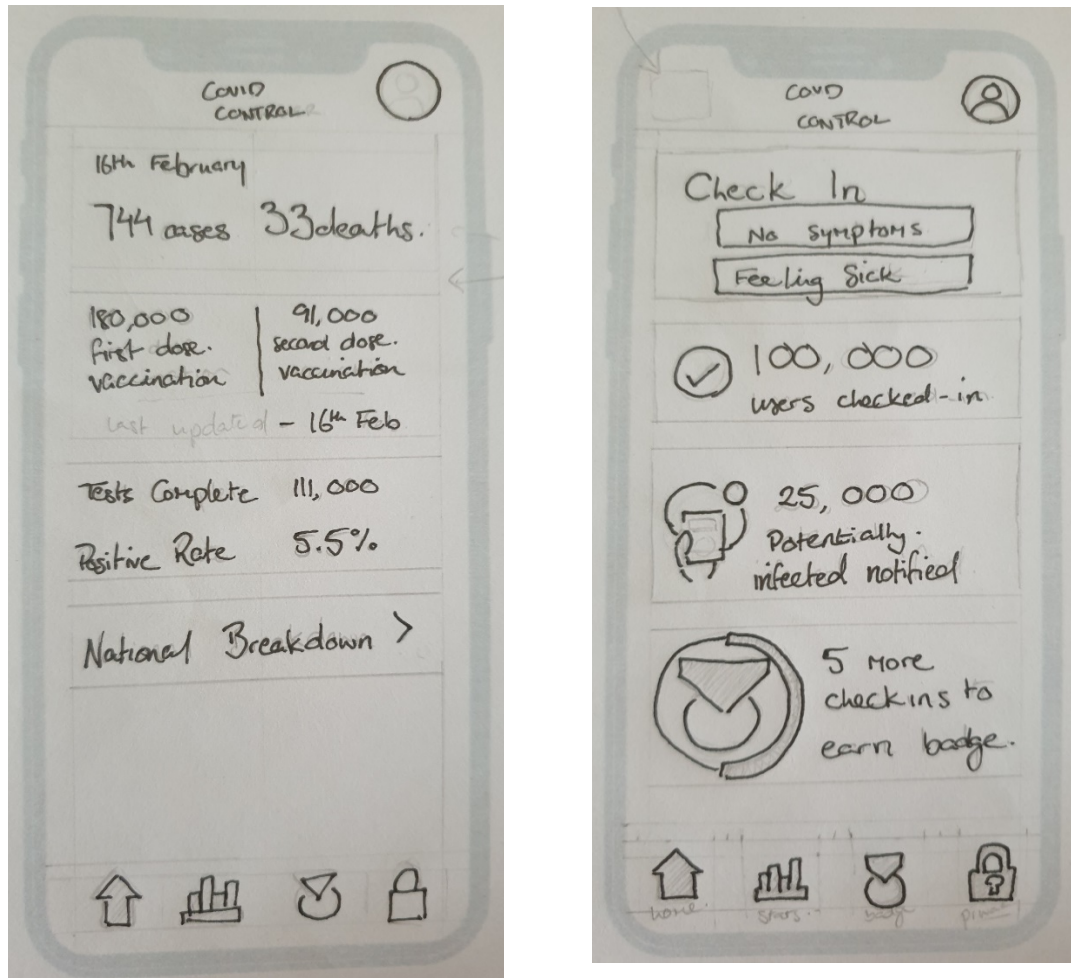 COVID
CONTROL
16th February
744 cases 33 deaths.
180,000
first dose.
vaccination
91,000
second dose.
vaccination
Last updated - 16th Feb
Tests Complete 111,000
Positive Rate 5.5%
National Breakdown >
COVD
CONTROL
Check In
No symptoms
Feeling Sick
100,000
users checked-in.
25,000
Potentially.
infected notified
5 More
checkins to
earn badge.
home.
stats.
badge